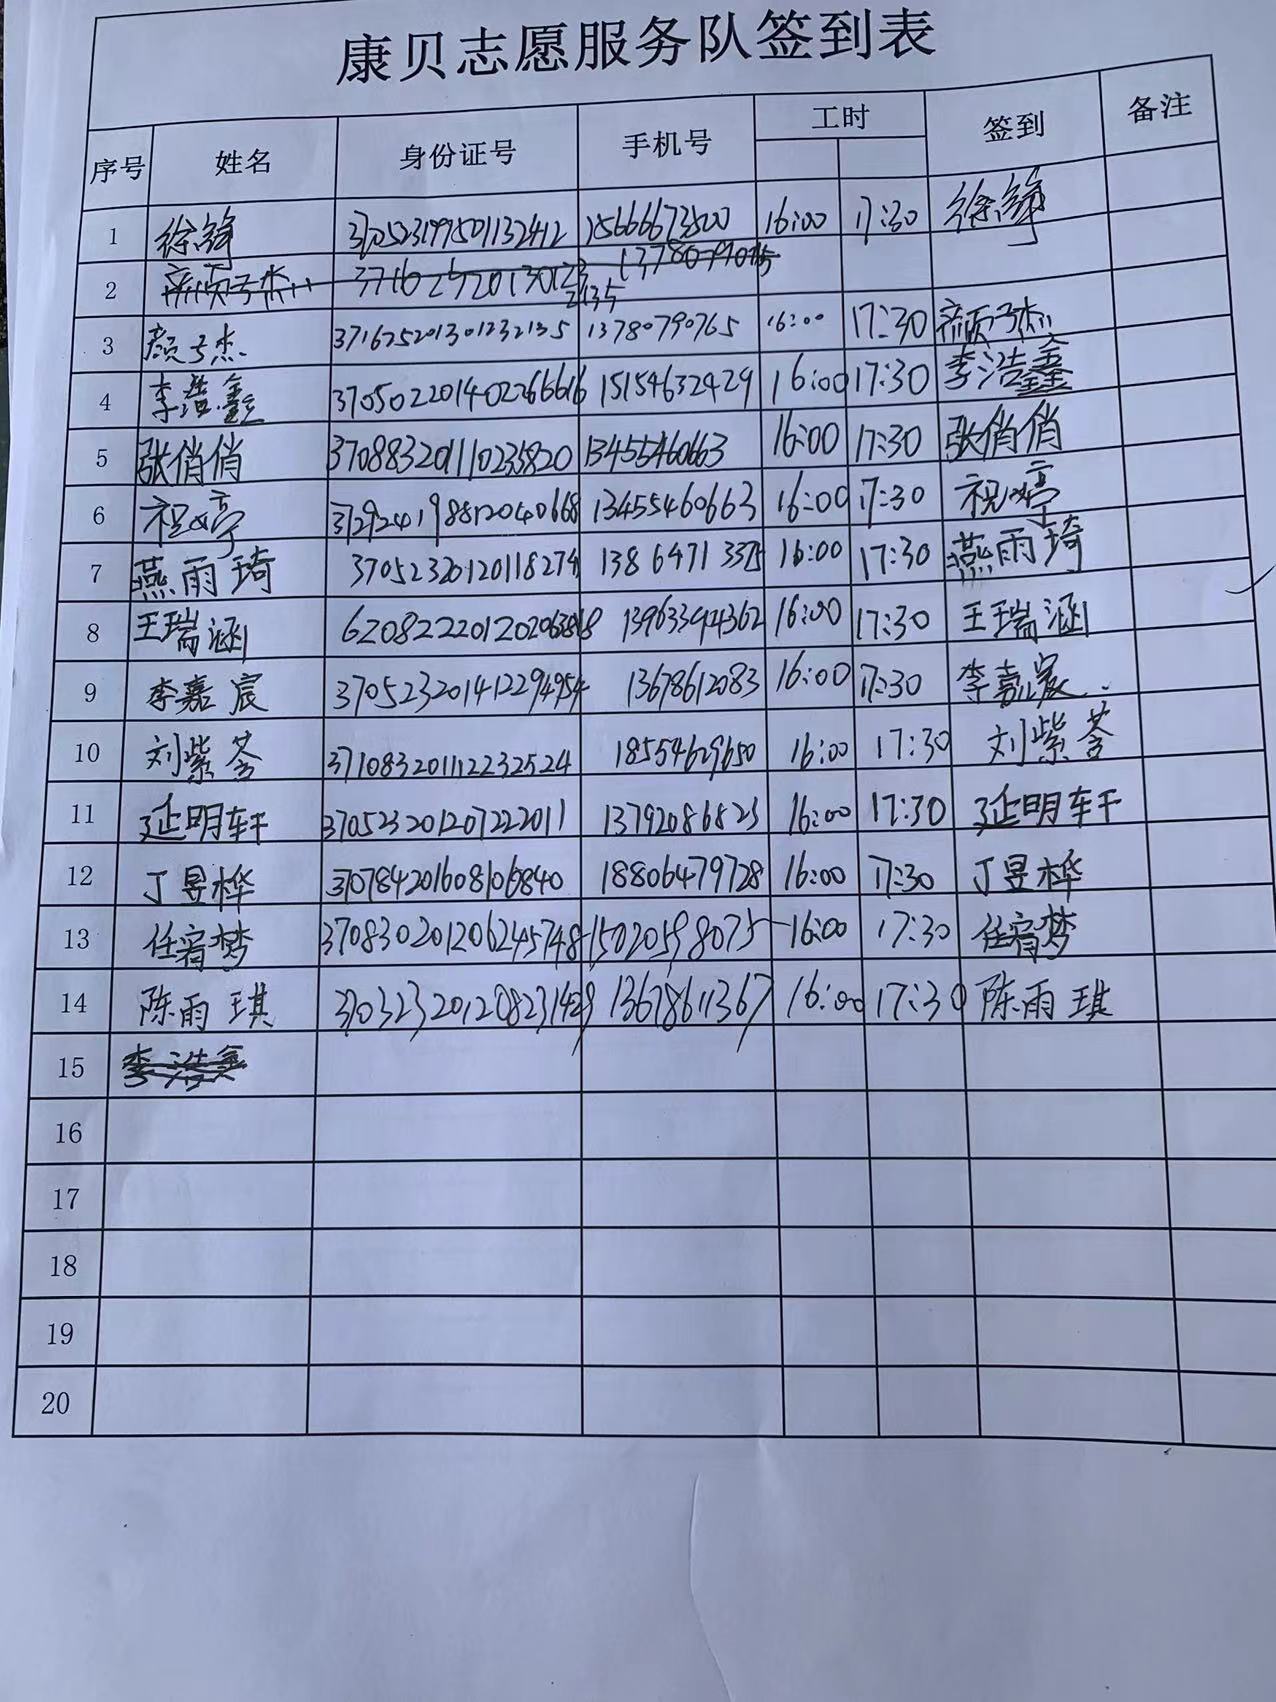 康贝志愿服务队签到表
序号 姓名 身份证号 手机号 工时 签到 备注
1 徐峰 370523199501132412 15666673500 16:00 17:30 徐峰
2 颜子杰 13780790765
3 颜子杰 371625201301232135 13780790765 16:00 17:30 颜子杰
4 李浩鑫 370502201402266616 15154632429 16:00 17:30 李浩鑫
5 张俏俏 370883201110235820 13455460663 16:00 17:30 张俏俏
6 祝 亭 372924198812040668 13455460663 16:00 17:30 祝 亭
7 燕雨琦 37052320120118274 13864713375 16:00 17:30 燕雨琦
8 王瑞涵 16:00 17:30 王瑞涵
9 李嘉宸 370523201412294954 13678612083 16:00 17:30 李嘉宸
10 刘紫荅 371083201112232524 18554629650 16:00 17:30 刘紫荅
11 延明轩 370523201207222011 13792086823 16:00 17:30 延明轩
12 丁昱桦 370784201608106840 18806479728 16:00 17:30 丁昱桦
13 任宥梦 370830201206245748 15020598075 16:00 17:30 任宥梦
14 陈雨琪 370323201208231429 13678611367 16:00 17:30 陈雨琪
15 李浩鑫
16
17
18
19
20